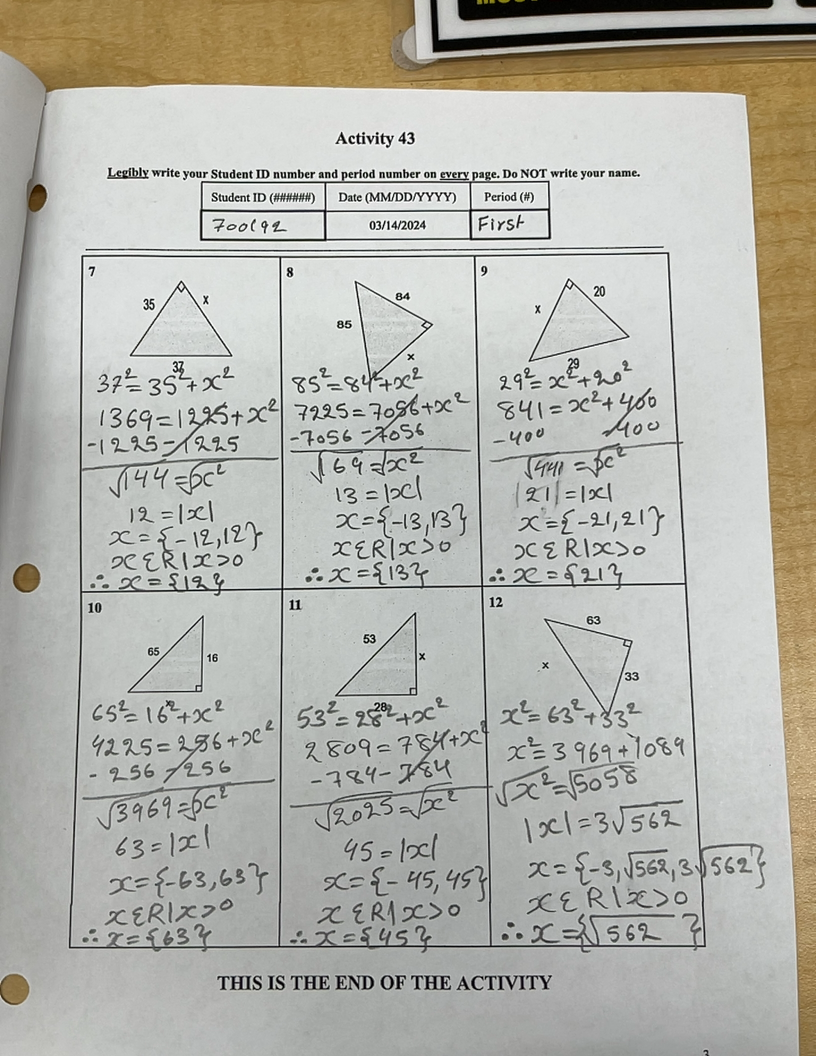 Activity 43
Legibly write your Student ID number and period number on every page. Do NOT write your name.
Student ID (######) Date (MM/DD/YYYY) Period (#)
700192 03/14/2024 First
7
35 x
37
37²=35²+x²
1369=1225+x²
-1225-1225
√144=√x²
12=|x|
x={-12,12}
xεR|x>0
∴x={12}
8
84
85
x
85²=84²+x²
7225=7056+x²
-7056-7056
√169=√x²
13=|x|
x={-13,13}
xεR|x>0
∴x={13}
9
20
x
29
29²=x²+20²
841=x²+400
-400 -400
√441=√x²
|21|=|x|
x={-21,21}
xεR|x>0
∴x={21}
10
65 16
x
65²=16²+x²
4225=256+x²
-256-256
√3969=√x²
63=|x|
x={-63,63}
xεR|x>0
∴x={63}
11
53
x
28
53²=28²+x²
2809=784+x²
-784-784
√2025=√x²
45=|x|
x={-45,45}
xεR|x>0
∴x={45}
12
63
x
33
x²=63²+33²
x²=3969+1089
√x²=√5058
|x|=3√562
x={-3,√562,3√562}
xεR|x>0
∴x={√562}
THIS IS THE END OF THE ACTIVITY